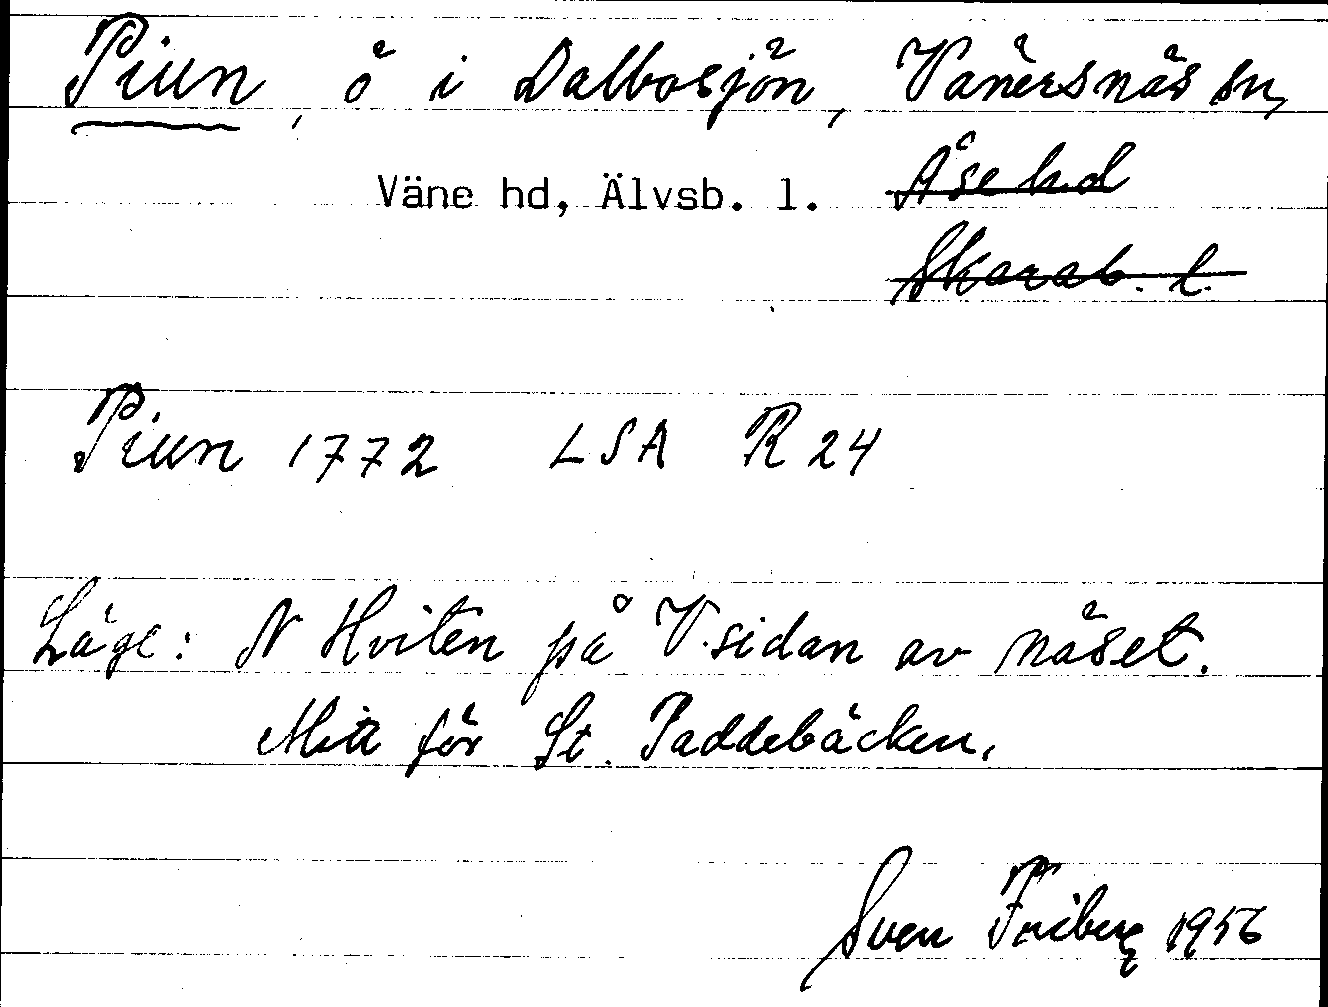 Piun, ö i Dalbosjön, Vänersnäs sn,
Väne hd, Älvsb. l. Åse hd
Skarab. l.
Piun 1772 LSA R 24
Läge: N Hviten på V. sidan av näset.
Mitt för St. Paddebäcken.
Sven Friberg 1956